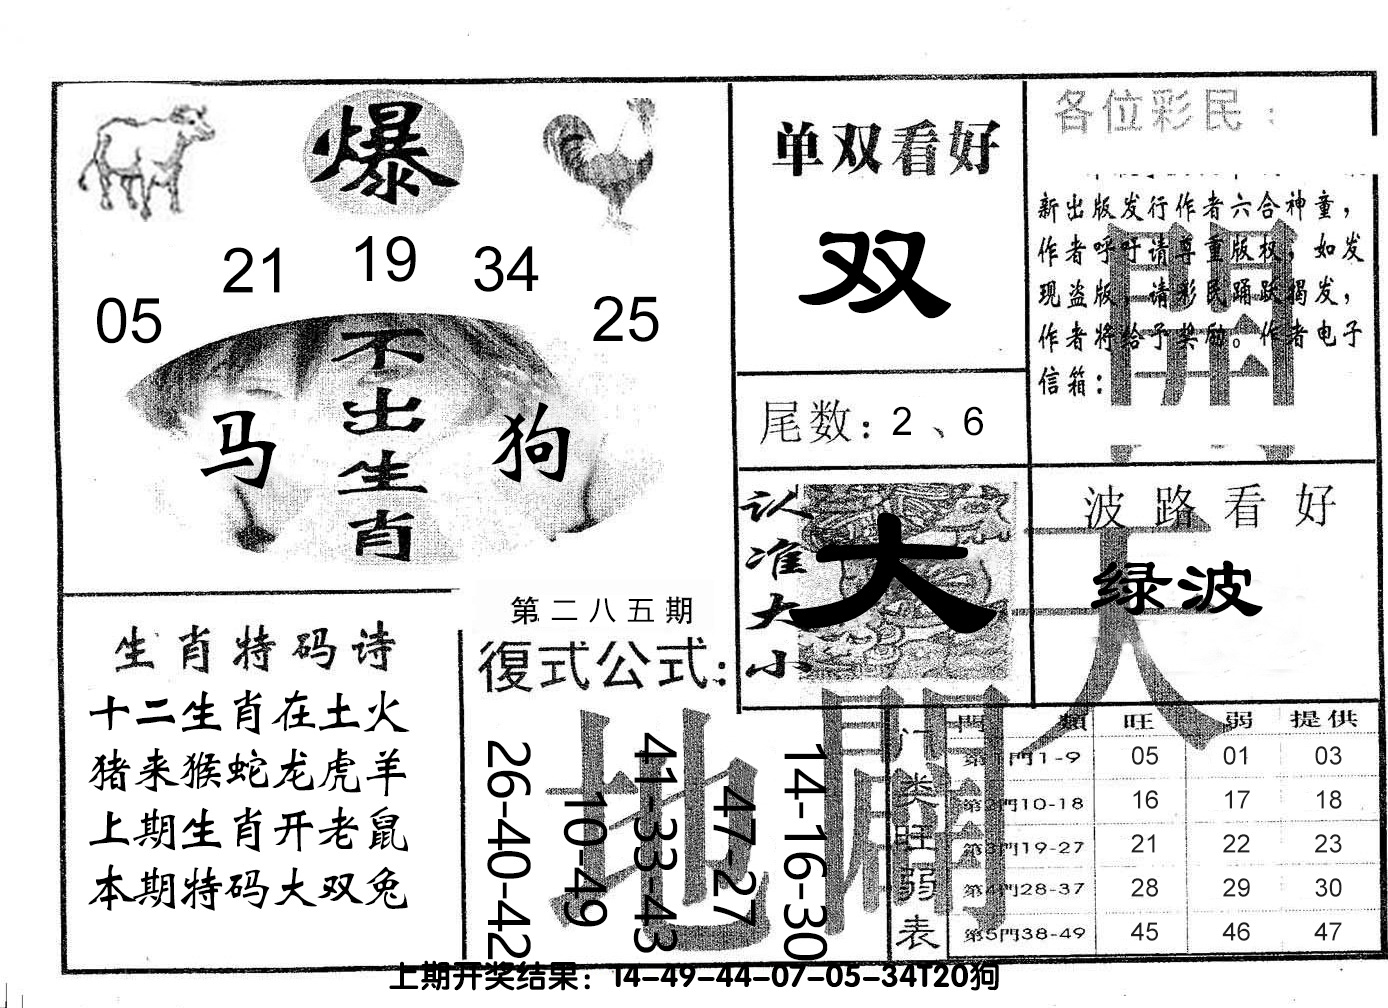 爆
05 21 19 34 25
不出生肖
马 狗
单双看好
双
尾数：2、6
各位彩民：
新出版发行作者六合神童，
作者呼吁请尊重版权，如发
现盗版，请彩民踊跃揭发，
作者将给予奖励。作者电子
信箱：
開
天
认准大小
大
波路看好
绿波
生肖特码诗
十二生肖在土火
猪来猴蛇龙虎羊
上期生肖开老鼠
本期特码大双兔
第二八五期
復式公式：
26-40-42
10-49
41-33-43
47-27
14-16-30
地
闢
门类旺弱表
門 類 旺 弱 提供
第1門1-9 05 01 03
第2門10-18 16 17 18
第3門19-27 21 22 23
第4門28-37 28 29 30
第5門38-49 45 46 47
上期开奖结果：14-49-44-07-05-34T20狗